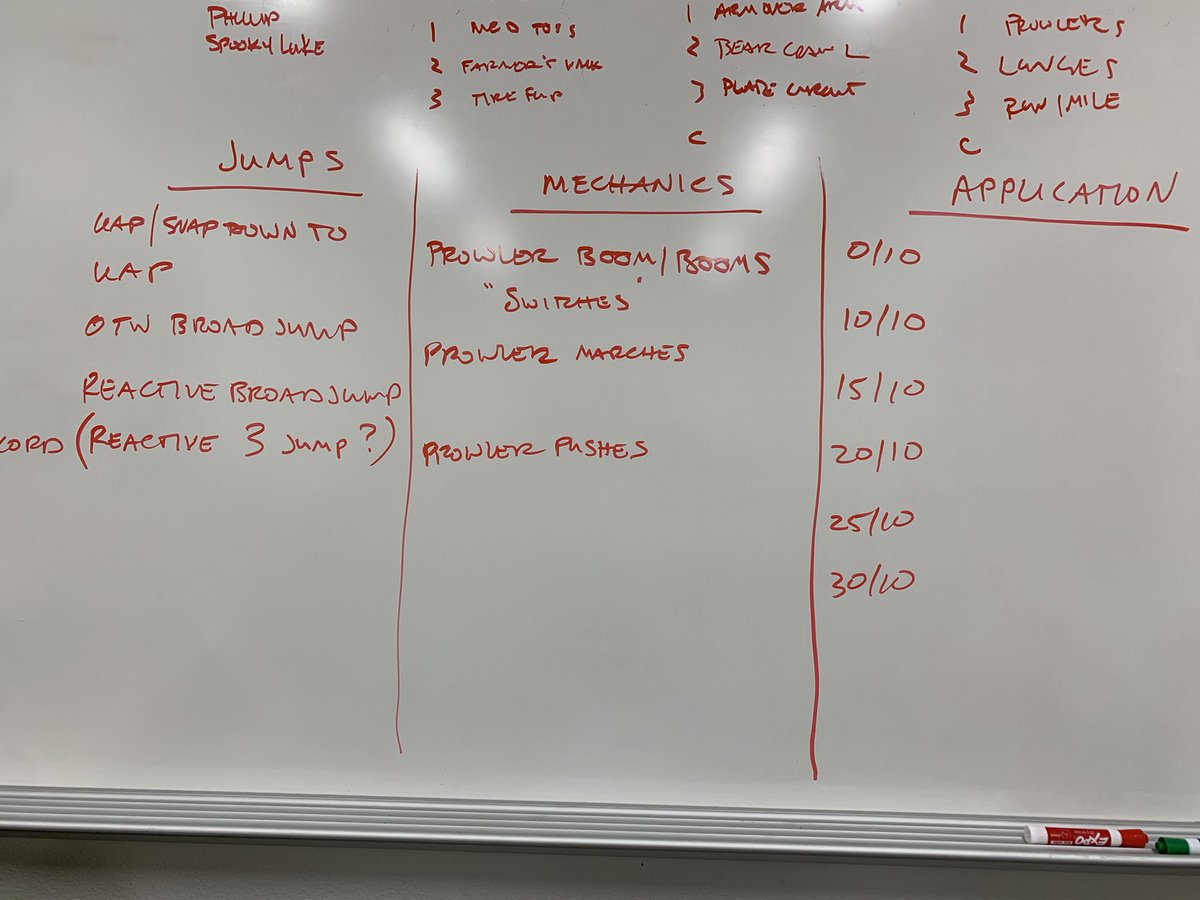 PHILLIP
SPOOKY LUKE
1 MED TOSS
2 FARMER'S WALK
3 TIRE FLIP
1 ARM OVER ARM
2 BEAR CRAWL
3 PLATE CIRCUIT
C
1 PROWLERS
2 LUNGES
3 RUN/MILE
C
JUMPS
KAP/SNAP DOWN TO
KAP
OTW BROAD JUMP
REACTIVE BROAD JUMP
(REACTIVE 3 JUMP?)
MECHANICS
PROWLER BOOM/BOOMS
"SWITCHES"
PROWLER MARCHES
PROWLER PUSHES
APPLICATION
0/10
10/10
15/10
20/10
25/10
30/10
EXPO